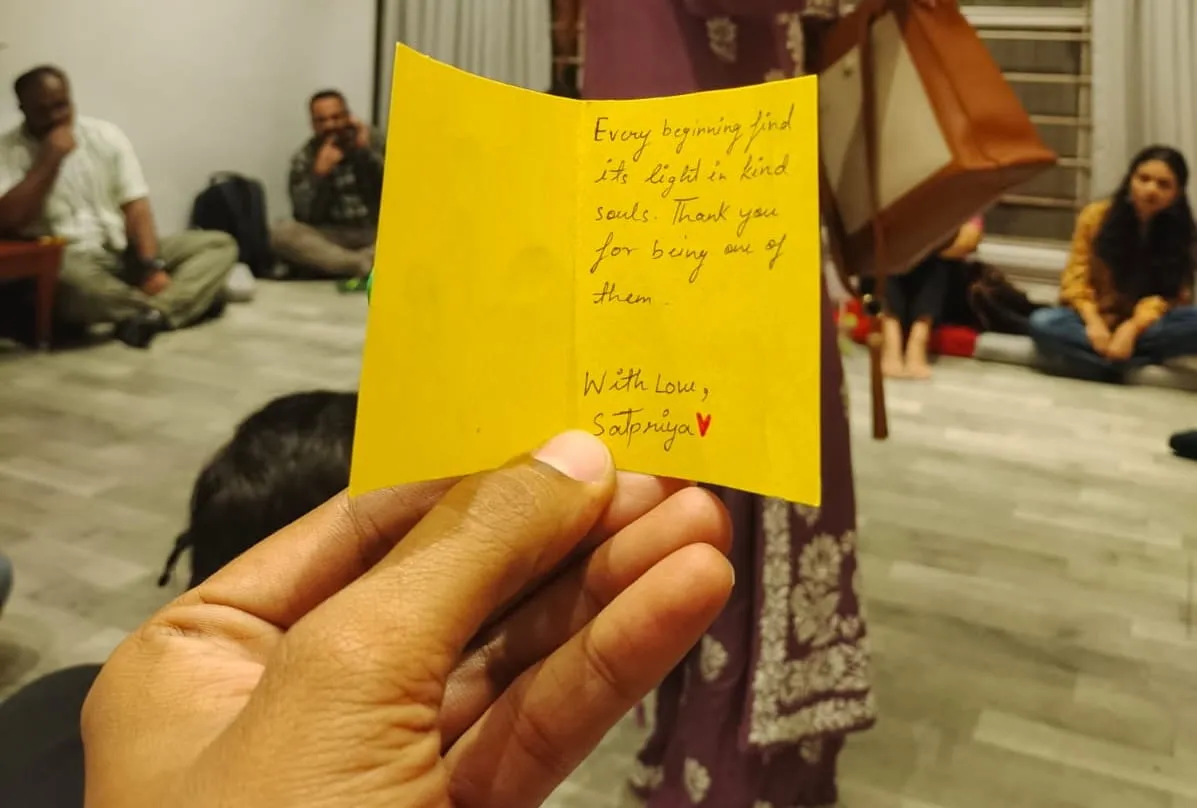 Every beginning find
its light in kind
souls. Thank you
for being one of
them.
With Love,
Satpriya